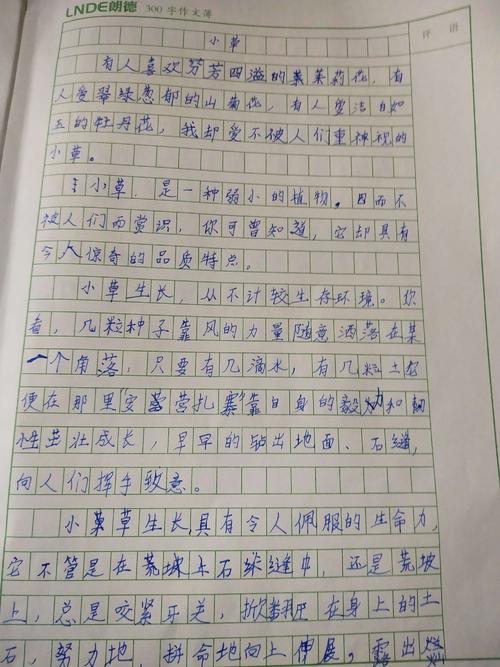 LNDE朗德 300字作文薄
评 语
小草
有人喜欢芬芳四溢的茉莉花,有
人爱翠绿葱郁的山菊花,有人爱洁白如
玉的牡丹花,我却爱不被人们重视的
小草。
小草,是一种弱小的植物。因而不
被人们而赏识,你可曾知道,它却具有
令人惊奇的品质特点。
小草生长,从不计较生存环境。你
看,几粒种子靠风的力量随意洒落在某
一个角落,只要有几滴水,有几粒土它
便在那里"安营扎寨"靠自身的毅力和韧
性茁壮成长,早早的钻出地面、石缝,
向人们挥手致意。
小草生长,具有令人佩服的生命力,
它不管是在荒坡土石缝中,还是荒坡
上,总是咬紧牙关,掀翻压在身上的土
石,努力地、拼命地向上伸展,露出